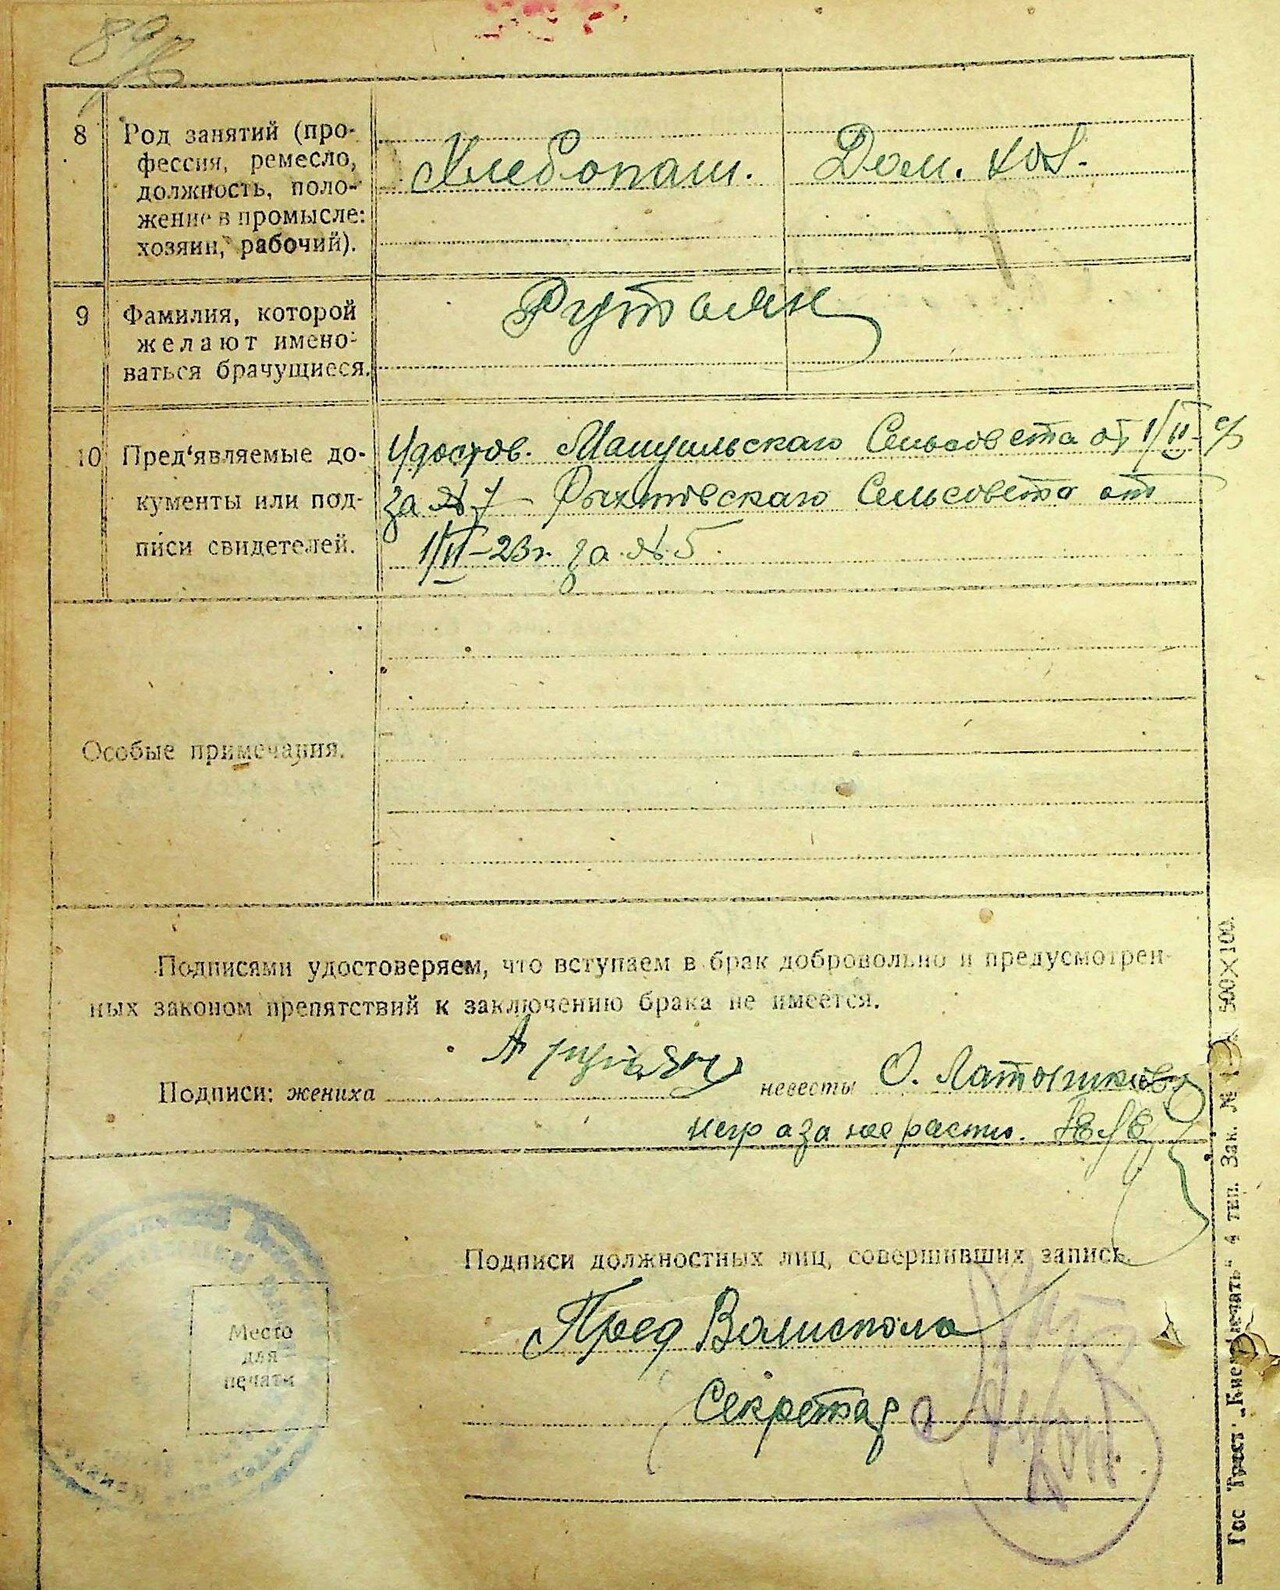 89/В
8 Род занятий (про-
фессия, ремесло,
должность, поло-
жение в промысле:
хозяин, рабочий).
Хлебопаш. Дом. хоз.
9 Фамилия, которой
желают имено-
ваться брачущиеся.
10 Пред'являемые до-
кументы или под-
писи свидетелей.
Удостов. Сельсовета от 1/II-
за № 7 Рыхтовскаго Сельсовета от
1/II-23 г. за № 5.
Особые примечания.
Подписями удостоверяем, что вступаем в брак добровольно и предусмотрен-
ных законом препятствий к заключению брака не имеется.
Подписи: жениха невесты О.
Подписи должностных лиц, совершивших запись.
Пред Волиспола
Секретар
Место
для
печати
Гос Трест „Киев-Печать" 4 тип. Зак. № 500×100.